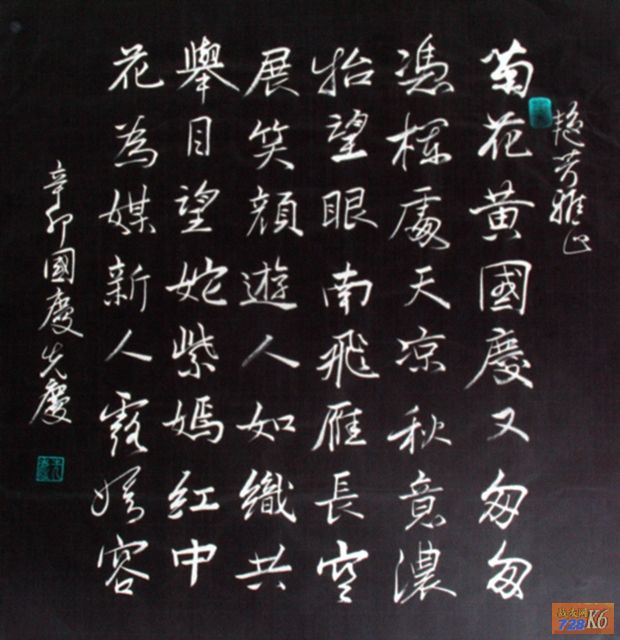 艳芳雅正
菊花黄國慶又匆匆
憑楼處天凉秋意濃
抬望眼南飛雁長空
展笑顔遊人如織共
舉目望姹紫嫣紅中
花為媒新人露嬌容
辛卯國慶先慶
728K6